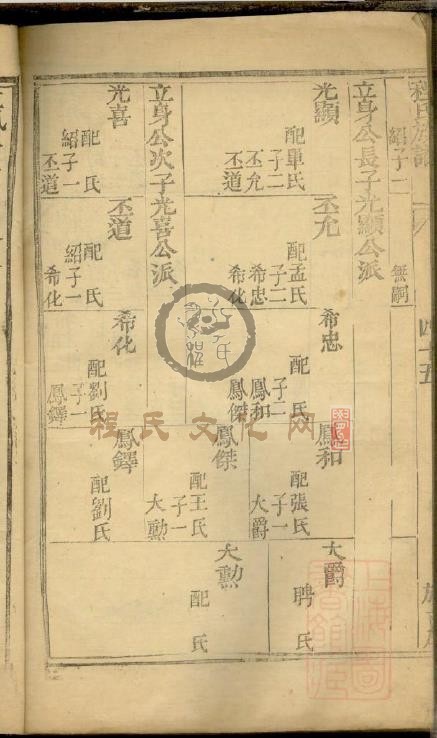 程氏族譜
四十五
紹子一
無嗣
立身公長子光顯公派
光顯
配單氏
子二
丕允
丕道
丕允
配孟氏
子二
希忠
希化
希忠
配 氏
子二
鳳和
鳳傑
鳳和
配張氏
子一
大爵
大爵
聘 氏
鳳傑
配王氏
子一
大勳
大勳
配 氏
立身公次子光喜公派
光喜
配 氏
紹子一
丕道
丕道
配 氏
紹子一
希化
希化
配劉氏
子一
鳳鐸
鳳鐸
配劉氏
程氏文化网